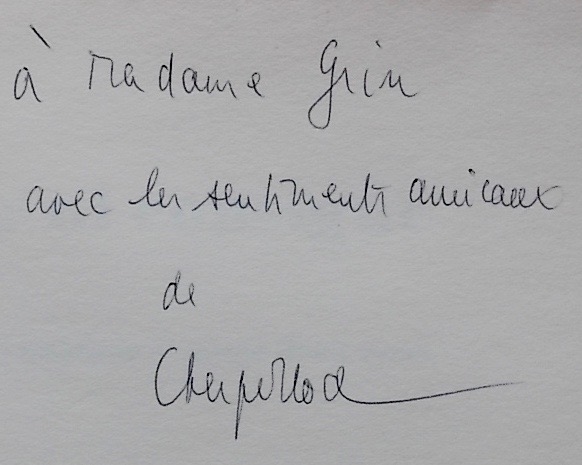 à Madame Grin
avec les sentiments amicaux
de
Cherpillod